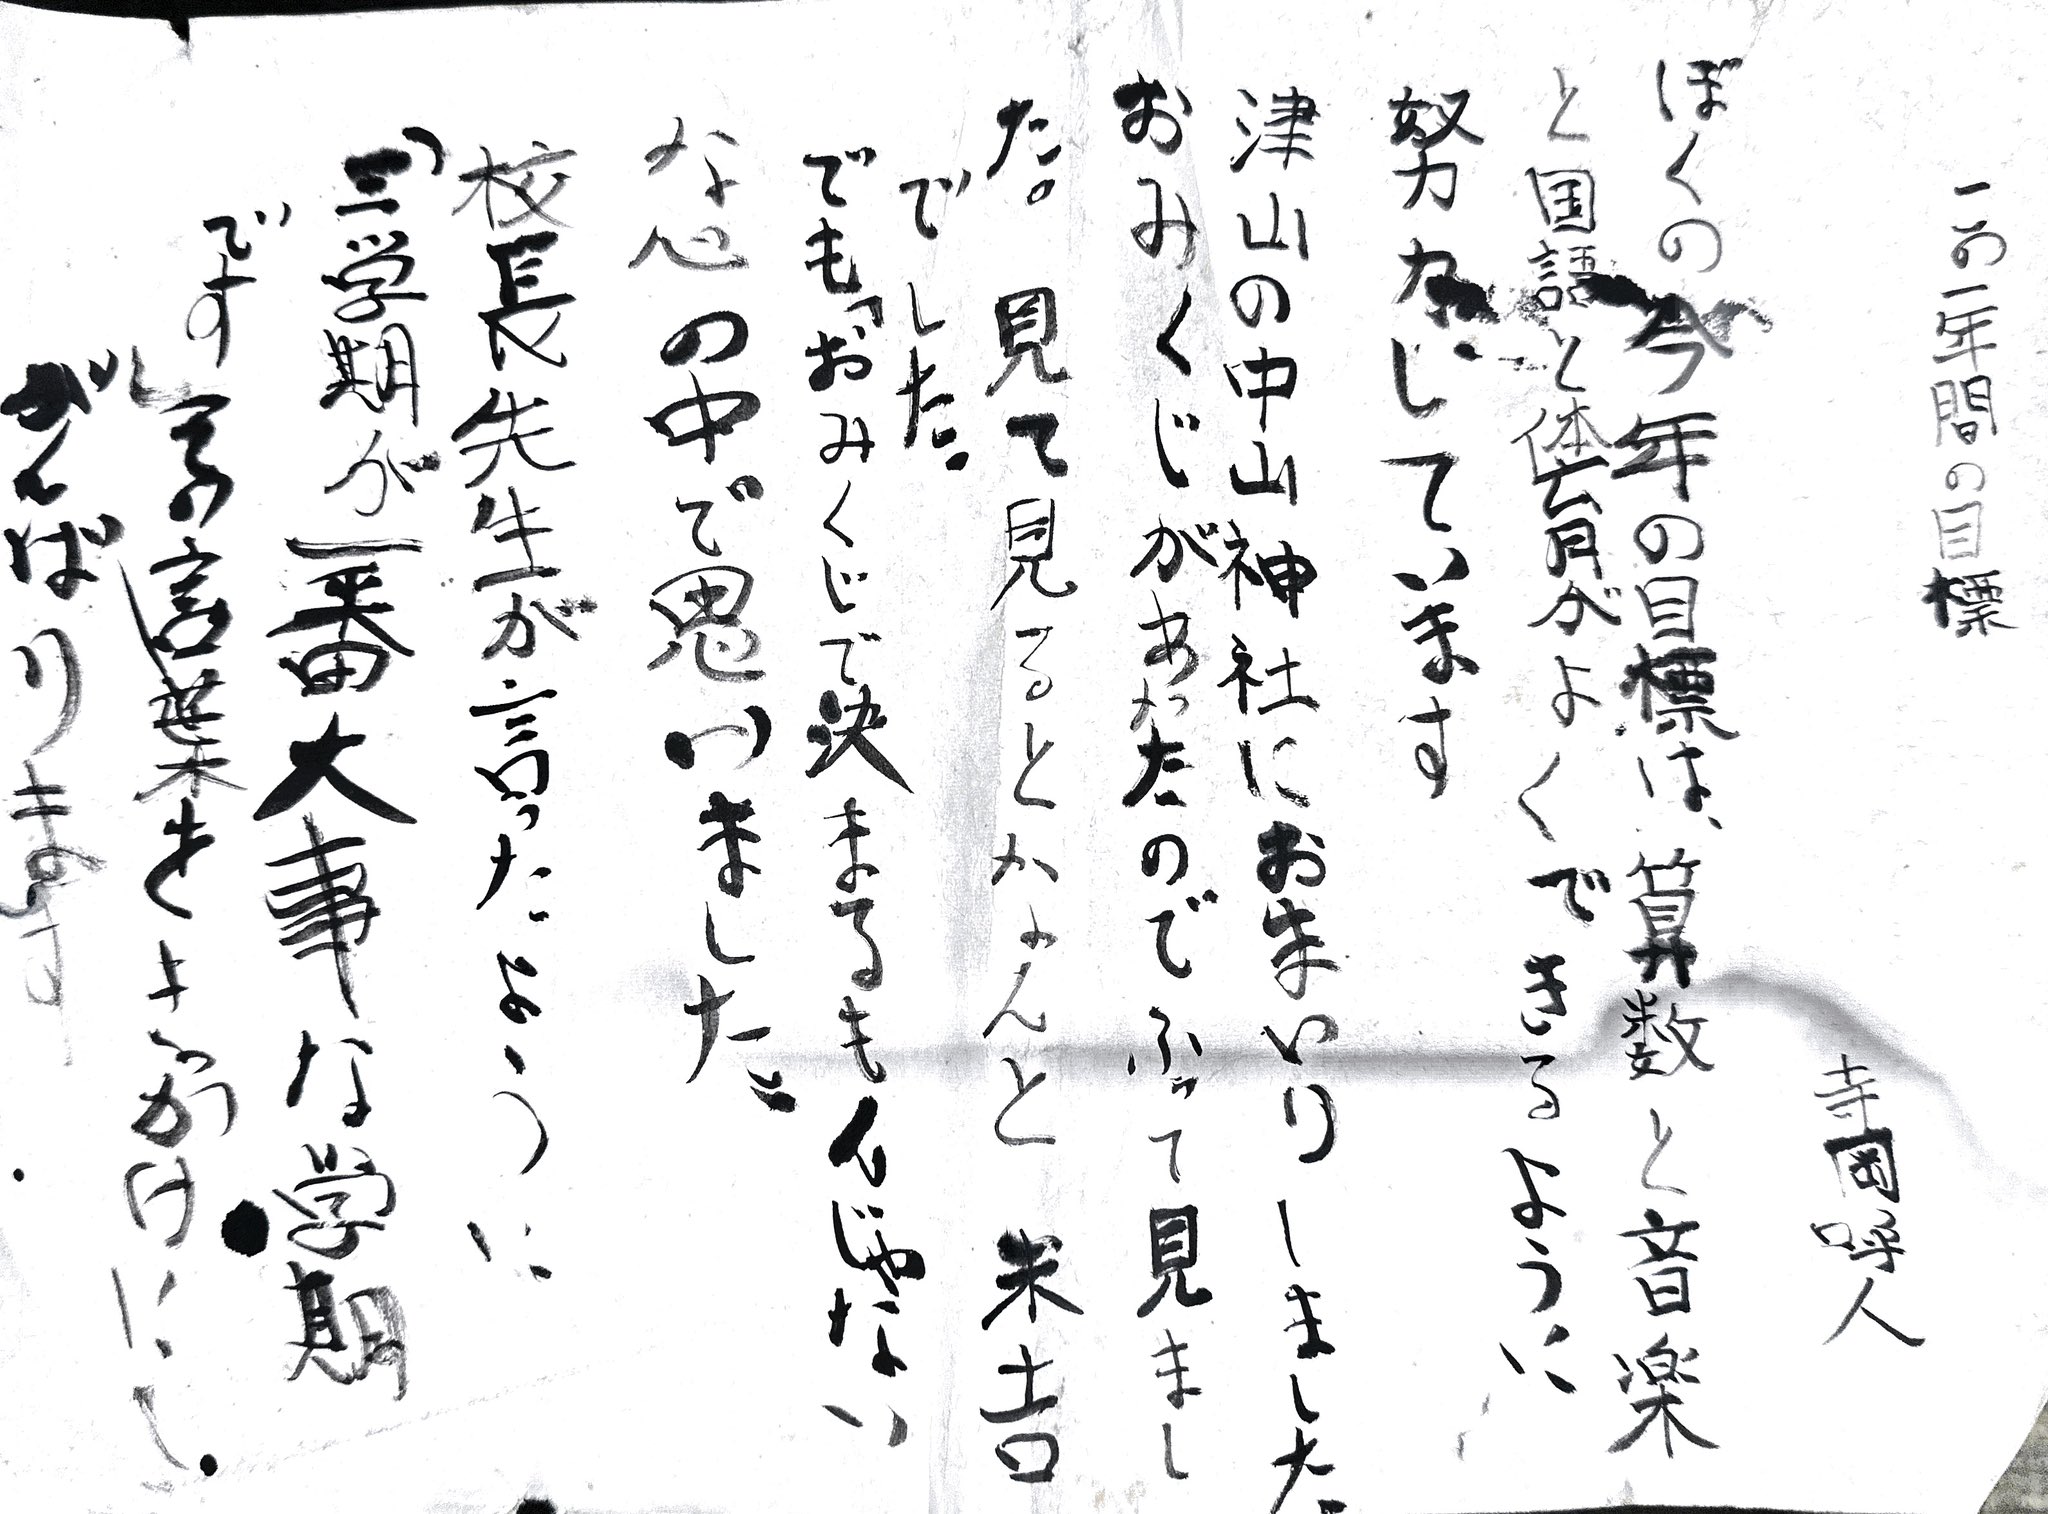 この一年間の目標
寺岡呼人
ぼくの今年の目標は、算数と音楽
と国語と体育がよくできるように
努力しています
津山の中山神社におまいりしました
おみくじがあったのでふって見まし
た。見て見るとなんと 末吉
でした。
でも「おみくじで決まるもんじゃない
な心の中で思いました。
校長先生が言ったように
「三学期が一番大事な学期
です」その言葉を
がんばります